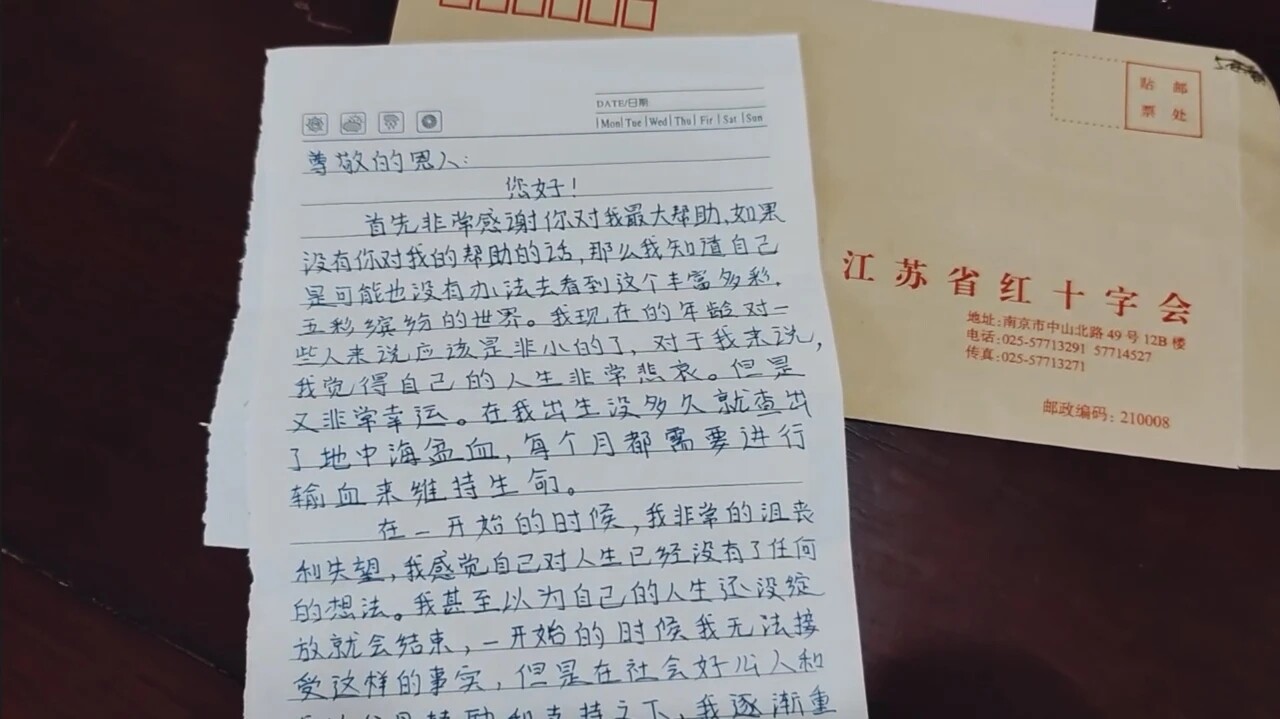 DATE/日期
Mon Tue Wed Thu Fir Sat Sun
尊敬的恩人:
您好!
首先非常感谢你对我最大帮助,如果
没有你对我的帮助的话,那么我知道自己
是可能也没有办法去看到这个丰富多彩,
五彩缤纷的世界。我现在的年龄对一
些人来说应该是非小的了,对于我来说,
我觉得自己的人生非常悲哀。但是
又非常幸运。在我出生没多久就查出
了地中海孟血,每个月都需要进行
输血来维持生命。
在一开始的时候,我非常的沮丧
和失望,我感觉自己对人生已经没有了任何
的想法。我甚至以为自己的人生还没绽
放就会结束,一开始的时候我无法接
受这样的事实,但是在社会好心人和
支持之下,我逐渐重
贴 邮
票 处
江苏省红十字会
地址:南京市中山北路49号12B楼
电话:025-57713291 57714527
传真:025-57713271
邮政编码:210008